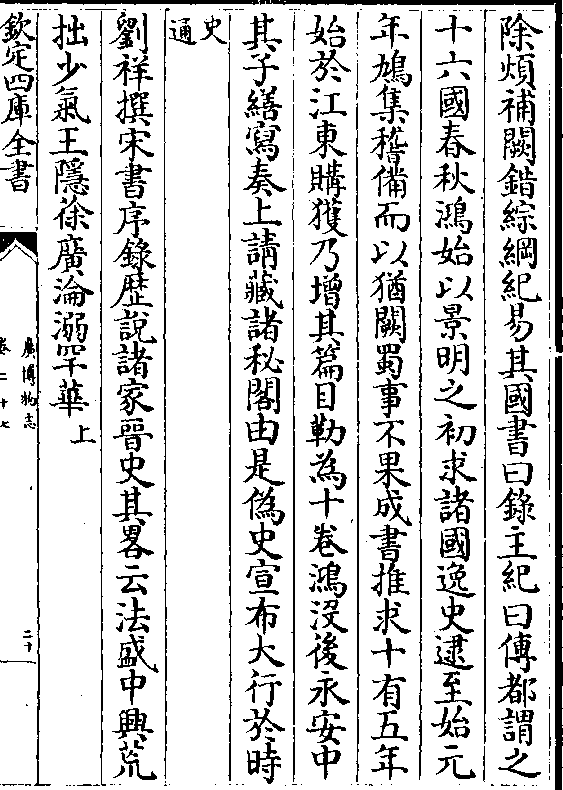 除煩補闕錯綜綱紀易其國書曰錄主紀曰傳都謂之
十六國春秋鴻始以景明之初求諸國逸史逮至始元
年鳩集稽備而以猶闕蜀事不果成書推求十有五年
始於江東購獲乃增其篇目勒為十卷鴻沒後永安中
其子繕寫奏上請藏諸秘閣由是偽史宣布大行於時
史
通
劉祥撰宋書序錄歴說諸家晉史其畧云法盛中興荒
拙少氣王隱徐廣淪溺罕華
上
欽定四庫全書
廣博物志
卷二十七
二十